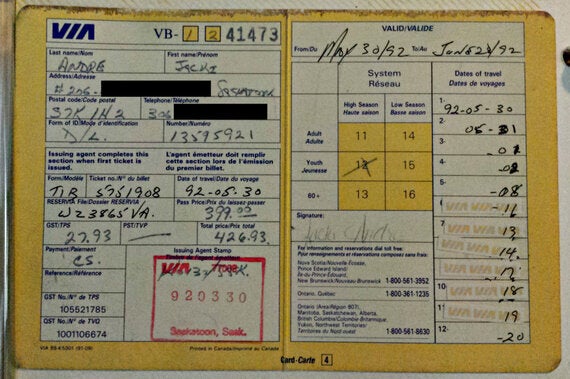 VIA VB-1 2 41473
Last name/Nom First name/Prénom
ANDRE JACKI
Address/Adresse
#206- SASKATOON
Postal code/Code postal Telephone/Téléphone
S7K 1H2 306
Form of ID/Mode d'identification Number/Numéro
D/L. 13595921
Issuing agent completes this section when first ticket is issued.
L'agent émetteur doit remplir cette section lors de l'émission du premier billet.
Form/Modèle Ticket no./N° du billet Date of travel/Date du voyage
TIR 5751908 92-05-30
RESERVIA File/Dossier RESERVIA Pass Price/Prix du laissez-passer
WZ3865VA. 399.00
GST/TPS PST/TVP Total price/Prix total
27.93 426.93.
Payment/Paiement Issuing Agent Stamp
CS. Timbre de l'agent émetteur
Reference/Référence
VIA
920330
Saskatoon, Sask.
GST No./N° de TPS
105521785
GST No./N° de TVQ
1001106674
Printed in Canada/Imprimé au Canada
VALID/VALIDE
From/Du MAY 30/92 To/Au JUNE 28/92
System
Réseau
High Season
Haute saison
Low Season
Basse saison
Adult
Adulte 11 14
Youth
Jeunesse 12 15
60+ 13 16
Signature:
For information and reservations dial toll free:
Pour renseignements et réservations composez sans frais:
Nova Scotia/Nouvelle-Écosse
Prince Edward Island/
Île-du-Prince-Édouard
New Brunswick/Nouveau-Brunswick 1-800-561-3952
Ontario, Québec 1-800-361-1235
Ontario (Area/Région 807),
Manitoba, Saskatchewan, Alberta,
British Columbia/Colombie-Britannique,
Yukon, Northwest Territories/
Territoires du Nord-ouest 1-800-561-8630
Dates of travel
Dates de voyages
1- 92-05-30
2- 05-31
3-
4-
5- -08
-11
7- 13
14.
10- 18
11- 19
12- -20
Card-Carte 4